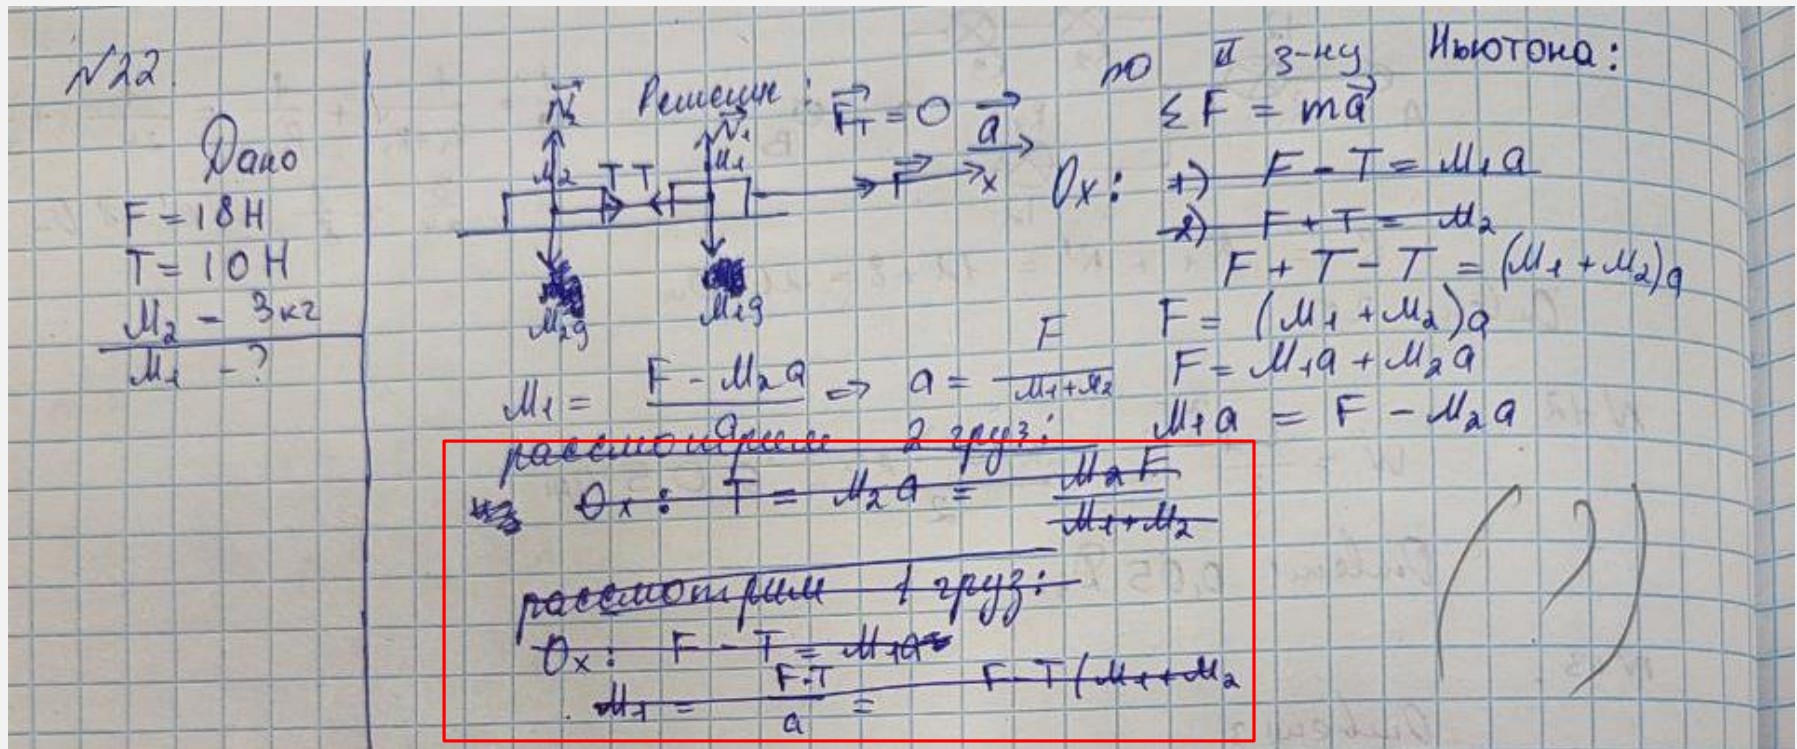 N22.
Дано
F = 18 Н
T = 10 Н
M₂ - 3 кг
M₁ - ?
Решение:
F⃗т = 0
a⃗
N⃗₂
N⃗₁
M₂
T T
M₁
F⃗
x
M₂g
M₁g
по II з-ну Ньютона:
ΣF⃗ = ma⃗
Ox: 1) F - T = M₁a
2) F + T = M₂
F + T - T = (M₁ + M₂)a
F = (M₁ + M₂)a
F = M₁a + M₂a
M₁a = F - M₂a
M₁ = (F - M₂a)/a => a = F/(M₁+M₂)
рассмотрим 2 груз:
из Ox: T = M₂a = M₂F/(M₁+M₂)
рассмотрим 1 груз:
Ox: F - T = M₁a
M₁ = (F-T)/a = F-T(M₁+M₂
(?)